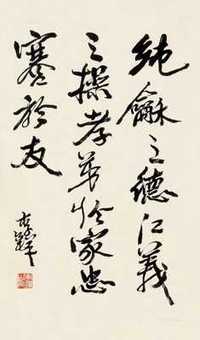 純龢之德仁義
之操孝弟於家忠
謇於友